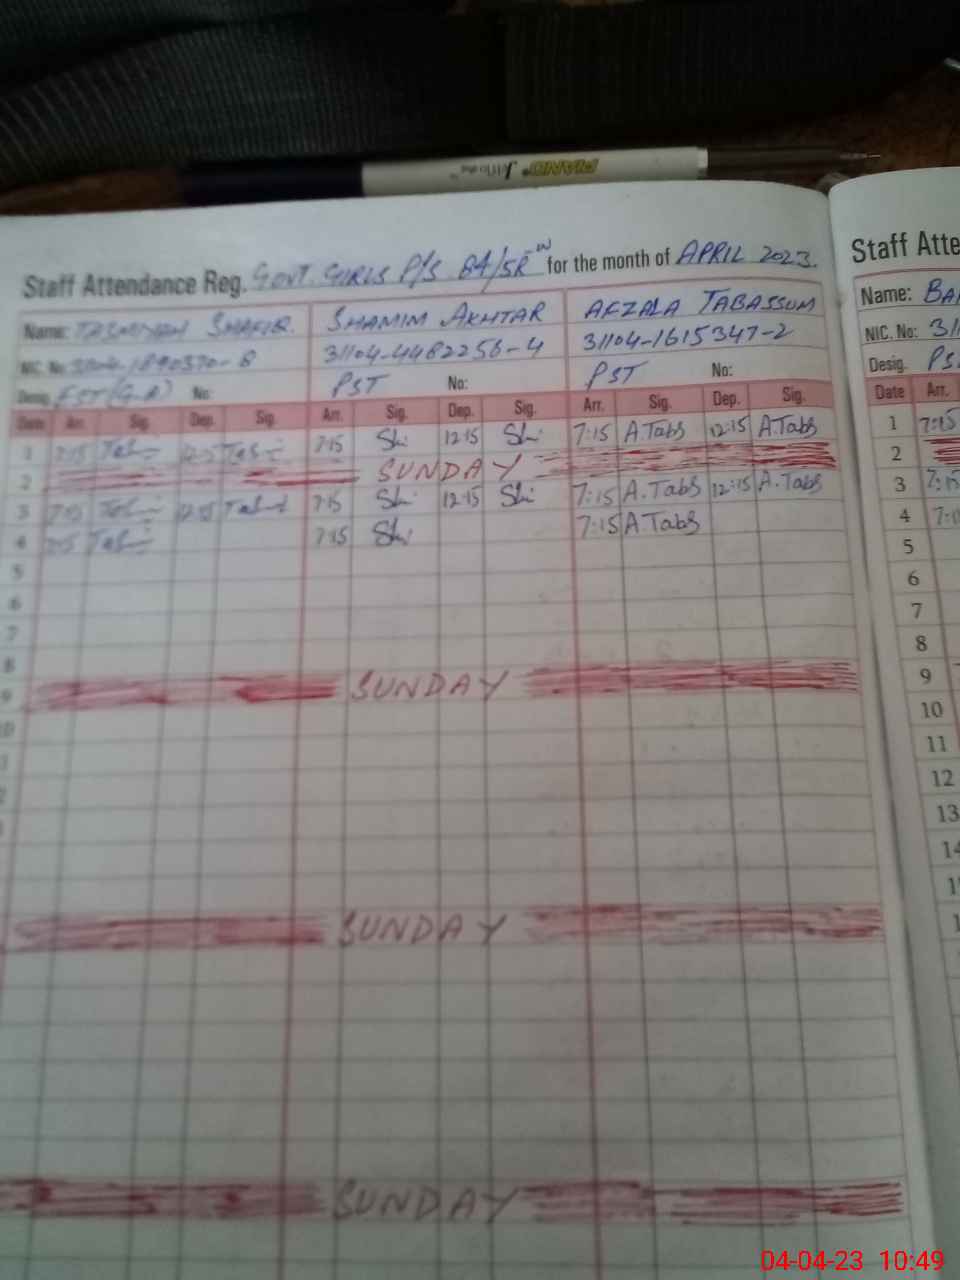 PIANO
Staff Attendance Reg. GOVT. GIRLS P/S 84/5R for the month of APRIL 2023.
Name: SHAFIQ SHAMIM AKHTAR AFZALA TABASSUM
NIC. No: 31104-4482256-4 31104-1615347-2
Desig. EST(G-A) No: PST No: PST No:
Date Arr. Sig. Dep. Sig. Arr. Sig. Dep. Sig. Arr. Sig. Dep. Sig.
1 7:15 12:15 7:15 Sh: 12:15 Sh: 7:15 A.Tabs 12:15 A.Tabs
2 SUNDAY
3 7:15 12:15 7:15 Sh: 12:15 Sh: 7:15 A.Tabs 12:15 A.Tabs
4 7:15 7:15 Sh: 7:15 A.Tabs
5
6
7
8
9 SUNDAY
SUNDAY
SUNDAY
Staff Atte
Name: BA
NIC. No: 31
Desig. PS
Date Arr.
1 7:15
2
3 7:15
4 7:1
5
6
7
8
9
10
11
12
13
14
04-04-23 10:49